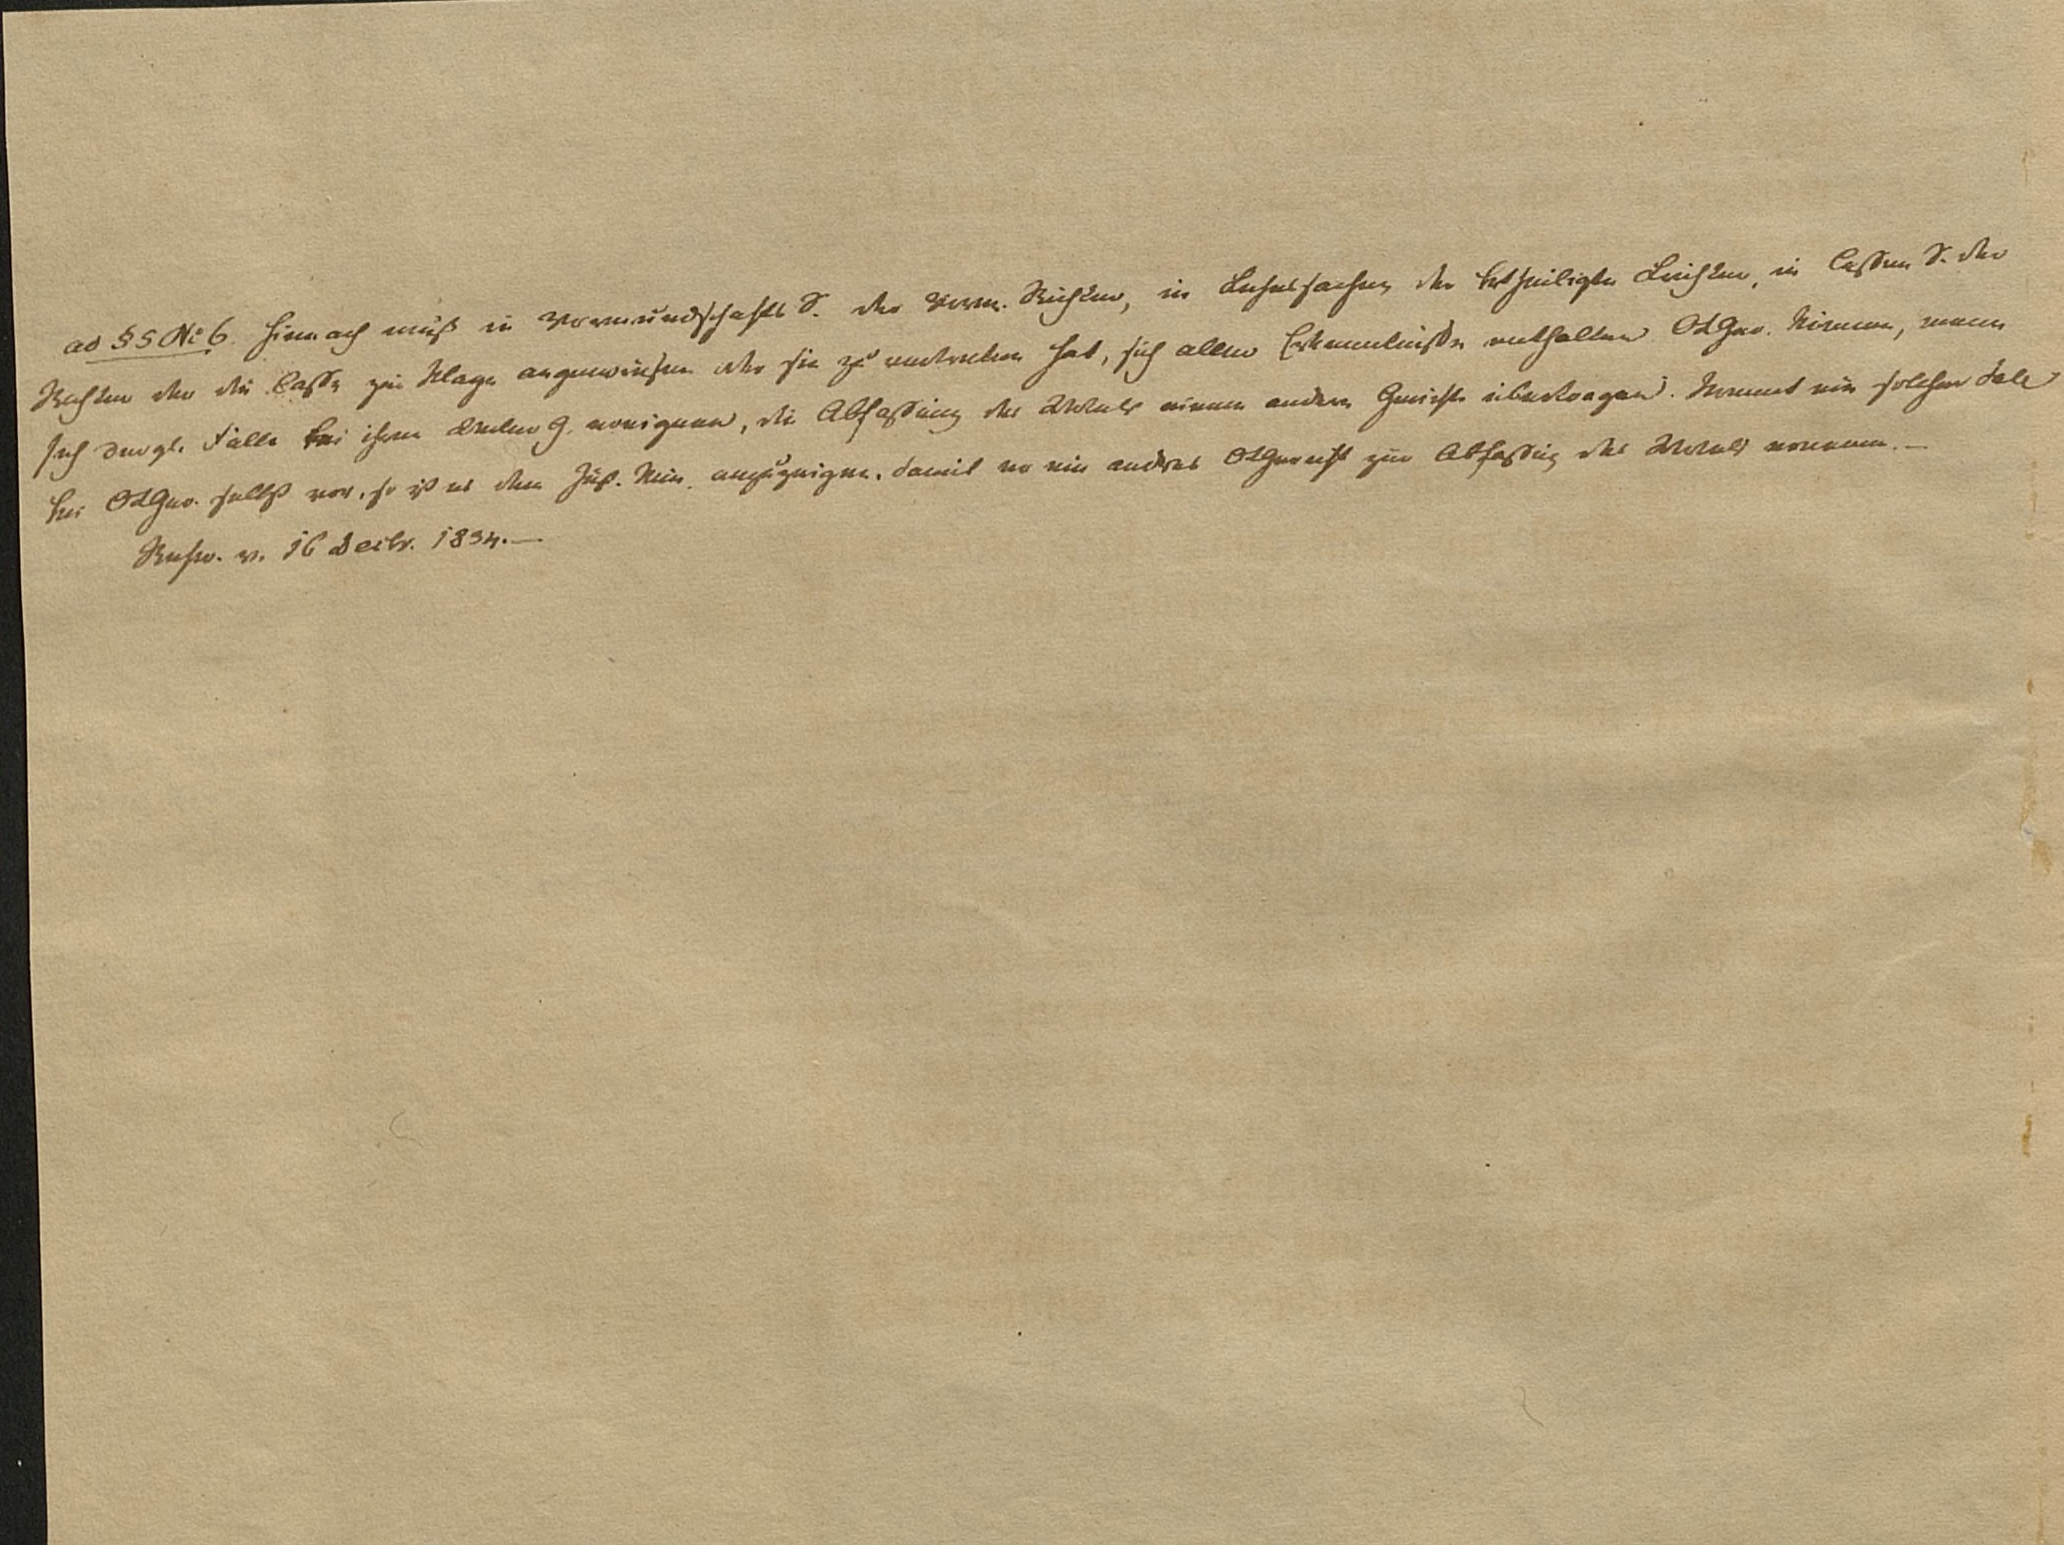 ad § 5 No 6. Hiernach muß in Vormundschafts S. der Vorm. Richter, in Lehnssachen der betheiligte Richter, in Cassen S. der
Richter der die Casse zur Klage angewiesen oder sie zu vertreten hat, sich aller Erkenntnisse enthalten OLGer. können, wenn
sich dergl. Fälle bei ihren Unter G. ereignen, die Abfassung des Urtels einem andern Gerichte übertragen. Kommt ein solcher Fall
bei OLGer. selbst vor, so ist es dem Just. Min. anzuzeigen, damit er ein anderes OLGericht zur Abfassung des Urtels ernenne.—
Rescr. v. 16 Decbr. 1834.—